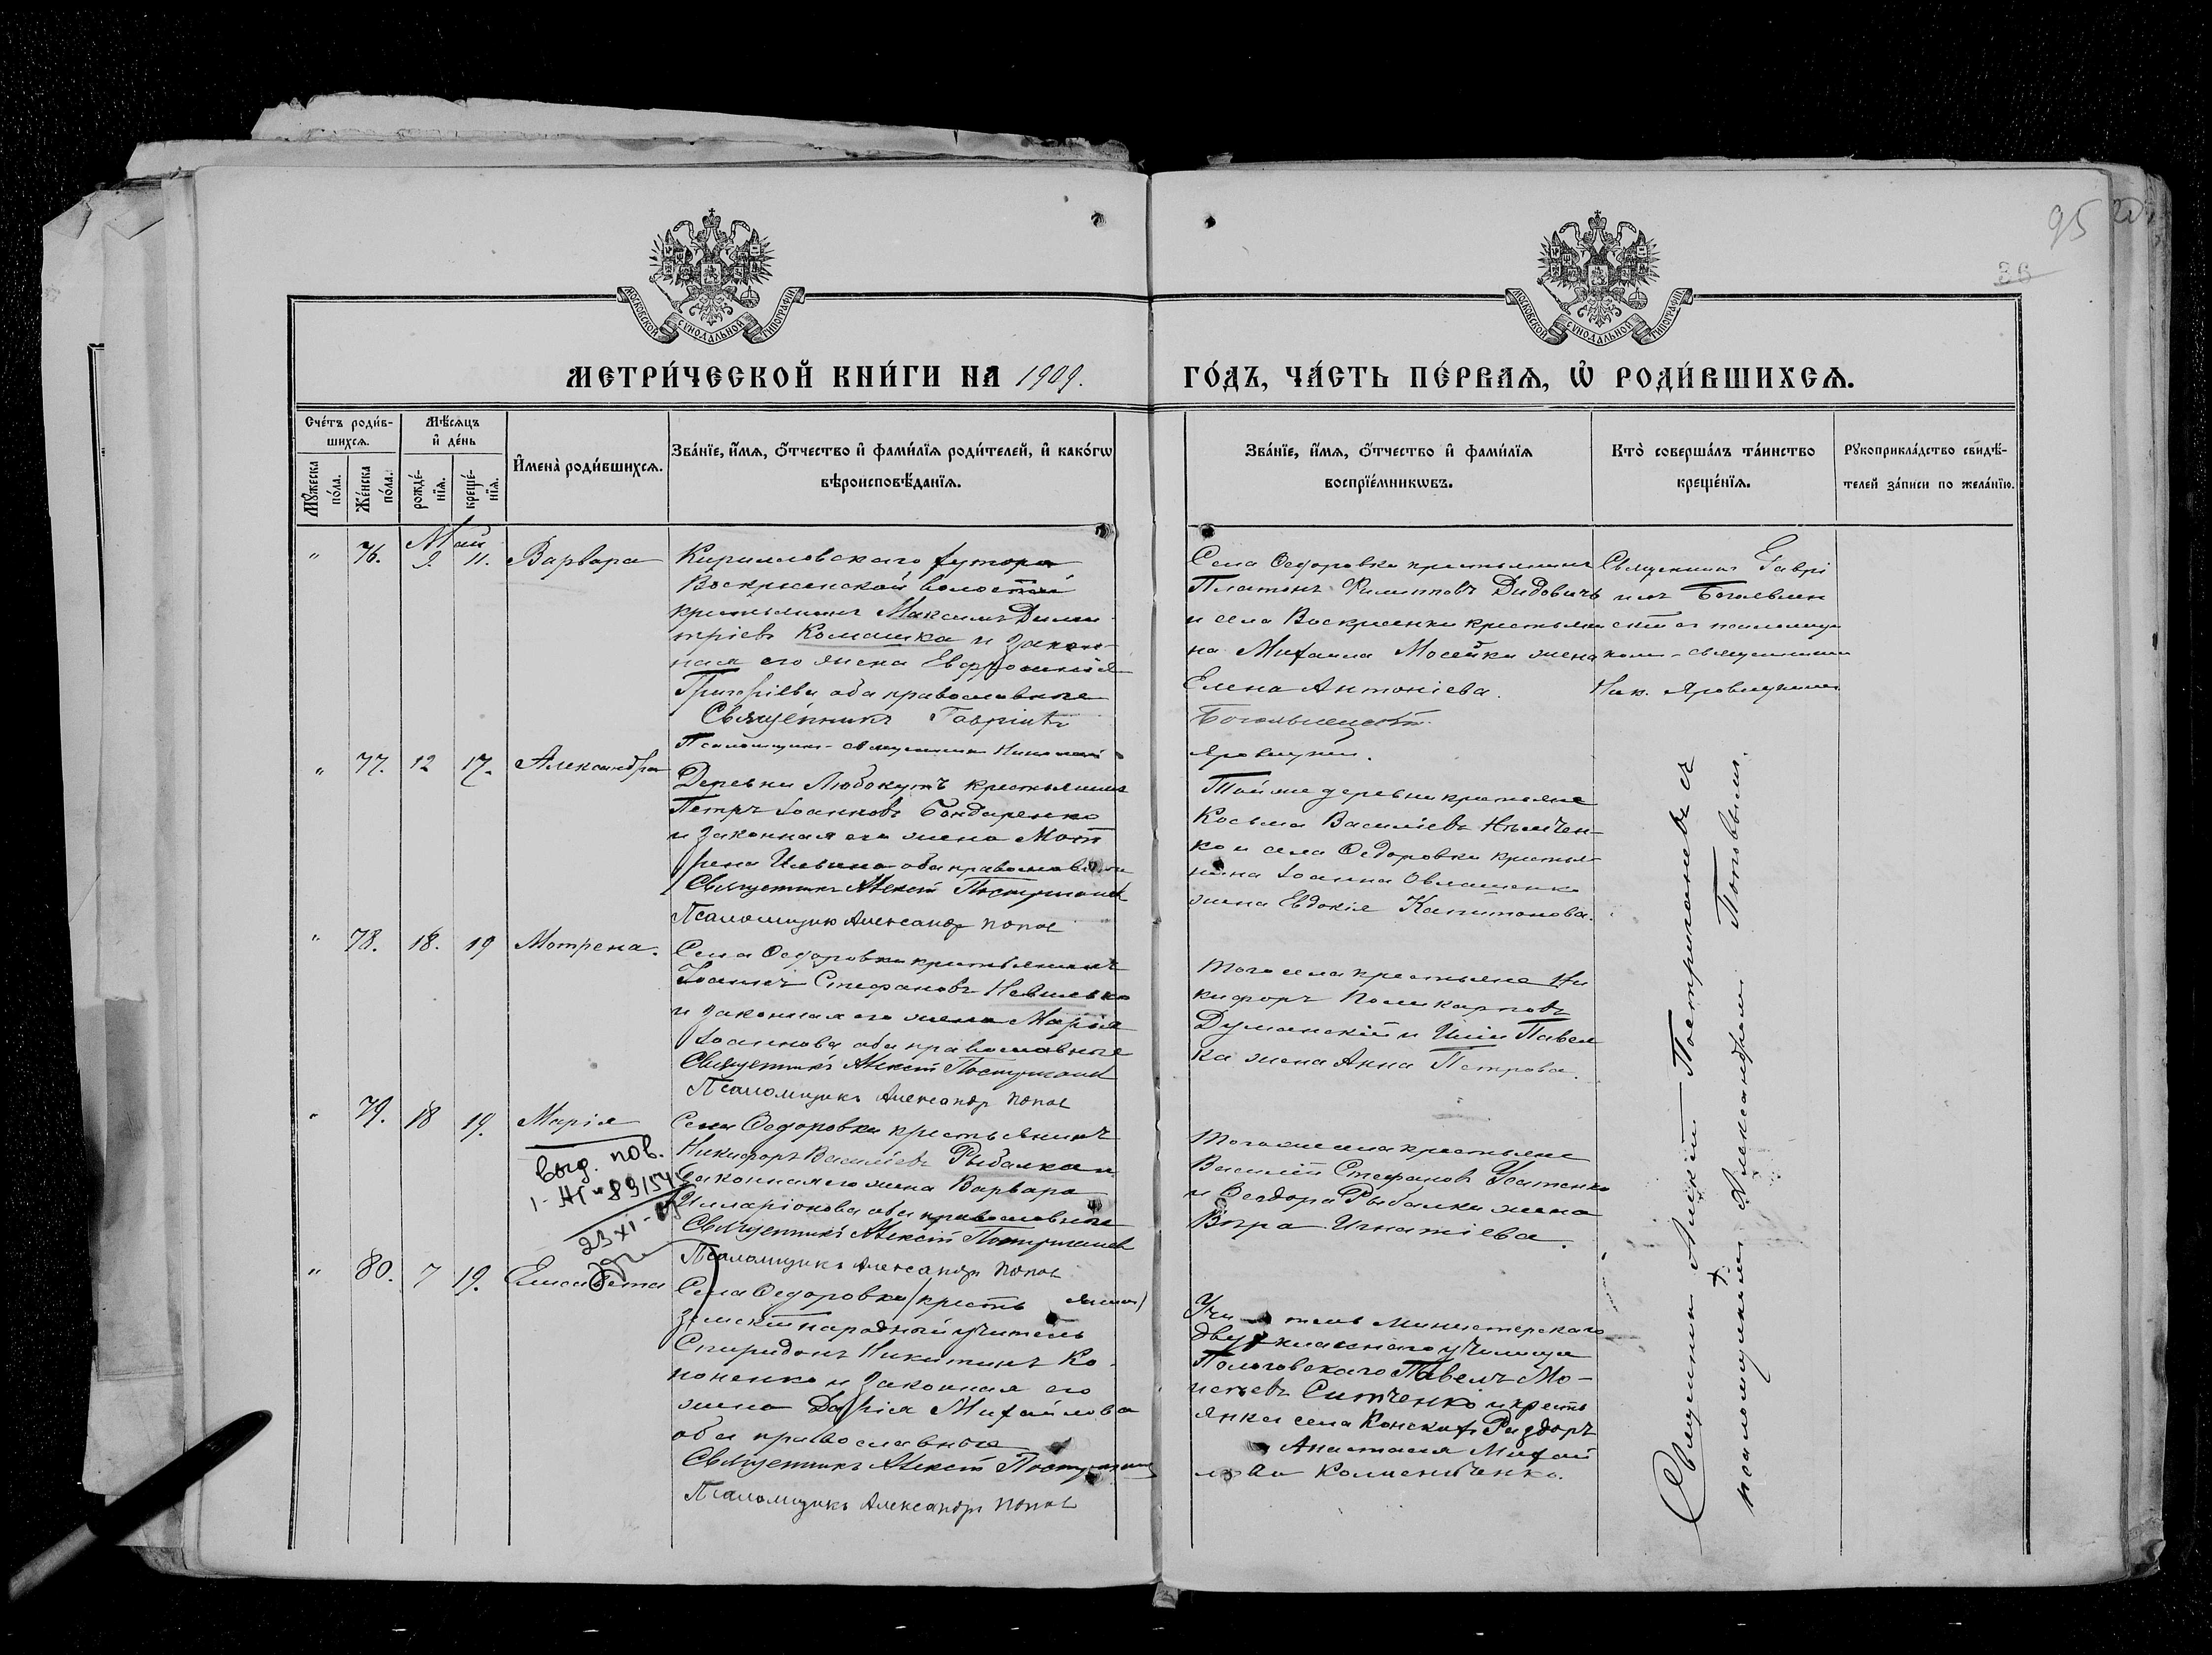 95
36
МОСКОВСКОЙ СѴНОДАЛЬНОЙ ТИПОГРАФІИ
МОСКОВСКОЙ СѴНОДАЛЬНОЙ ТИПОГРАФІИ
МЕТРИ́ЧЕСКОЙ КНИ́ГИ НА 1909. ГО́ДЪ, ЧА́СТЬ ПЕ́РВАѦ, Ѡ҆ РОДИ́ВШИХСѦ.
Сче́тъ роди́в-
шихсѧ.
Мꙋ́жеска по́ла.
Же́нска по́ла.
Мѣ́сѧцъ
и҆ де́нь
рожде́-
нїѧ.
креще́-
нїѧ.
И҆мена̀ роди́вшихсѧ.
Зва́нїе, и҆́мѧ, ѻ҆́тчество и҆ фами́лїѧ роди́телей, и҆ како́гѡ
вѣроисповѣ́данїѧ.
Зва́нїе, и҆́мѧ, ѻ҆́тчество и҆ фами́лїѧ
воспрїе́мникѡвъ.
Кто̀ соверша́лъ та́инство
креще́нїѧ.
Рꙋкоприкла́дство свидѣ́-
телей за́писи по жела́нїю.
Май
" 76. 9. 11. Варвара
Кирилловскаго хутора
Воскресенской волости
крестьянинъ Максимъ Дими
тріевъ Комашка и закон-
ная его жена Евфросинія
Григоріева оба православные
Священникъ Гавріилъ
Псаломщикъ-священникъ Николай
Села Ѳедоровки крестьянинъ
Платонъ Филипповъ Дидовичъ
и села Воскресенки крестьяни
на Михаила Мосейки жена
Елена Антоніева.
Богоявленскій.
Яровицкій.
Священникъ Гаврі
илъ Богоявлен
скій съ псаломщи
комъ-священникомъ
Ник. Яровицкимъ
" 77. 12 17. Александра
Деревни Любокутъ крестьянинъ
Петръ Іоанновъ Бондаренко
и законная его жена Мот
рена Ильина оба православные
Священникъ Алексій Постригачевъ
Псаломщикъ Александръ Поповъ
Той же деревни крестьяне
Косьма Василіевъ Нѣмчен-
ко и села Ѳедоровки крестья-
нина Іоанна Овлашенко
жена Евдокія Капитонова.
" 78. 18. 19 Мотрена.
Села Ѳедоровки крестьянинъ
Іоаннъ Стефановъ Невилько
и законная его жена Марія
Іоаннова оба православные
Священникъ Алексій Постригачевъ
Псаломщикъ Александръ Поповъ
Того села крестьяне Ни
кифоръ Поликарповъ
Думанскій и Павел
ка жена Анна Петрова.
" 79. 18 19. Марія
выд. пов.
23 XI
Села Ѳедоровки крестьянинъ
Никифоръ Василіевъ Рыбалка и
законная его жена Варвара
Илларіонова оба православные
Священникъ Алексій Постригачевъ
Псаломщикъ Александръ Поповъ
Того же села крестьяне
Василій Стефановъ Усатенко
и Ѳеодора Рыбалки жена
Вѣра Игнатіева.
" 80. 7 19. Елисавета
Села Ѳедоровки (крестьянинъ)
земскій народный учитель
Спиридонъ Никитинъ Ко-
поненко и законная его
жена Дарія Михайлова
оба православные
Священникъ Алексій Постригачевъ
Псаломщикъ Александръ Поповъ
Учитель Министерскаго
двухкласснаго училища
Пологовскаго Павелъ Мо-
исеевъ Ситченко и кресть
янка села Конскихъ Раздоръ
Анастасія Михай
лова Колисниченко.
Священникъ Алексій Постригачевъ съ
псаломщикомъ Александромъ Поповымъ.